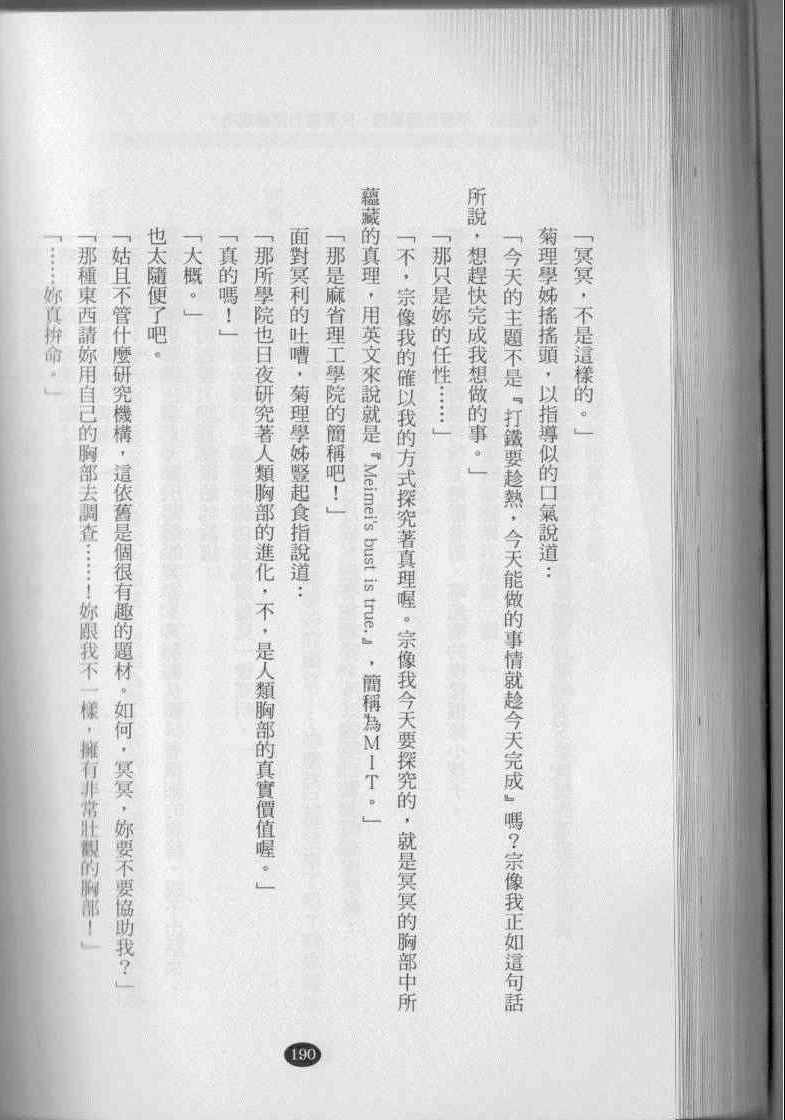 「冥冥，不是這樣的。」
菊理學姊搖搖頭，以指導似的口氣說道：
「今天的主題不是『打鐵要趁熱，今天能做的事情就趁今天完成』嗎？宗像我正如這句話
所說，想趕快完成我想做的事。」
「那只是妳的任性……」
「不，宗像我的確以我的方式探究著真理喔。宗像我今天要探究的，就是冥冥的胸部中所
蘊藏的真理，用英文來說就是『Meimei's bust is true.』，簡稱為ＭＩＴ。」
「那是麻省理工學院的簡稱吧！」
面對冥利的吐嘈，菊理學姊豎起食指說道：
「那所學院也日夜研究著人類胸部的進化，不，是人類胸部的真實價值喔。」
「真的嗎！」
「大概。」
也太隨便了吧。
「姑且不管什麼研究機構，這依舊是個很有趣的題材。如何，冥冥，妳要不要協助我？」
「那種東西請妳用自己的胸部去調查……！妳跟我不一樣，擁有非常壯觀的胸部！」
「……妳真拚命。」
190